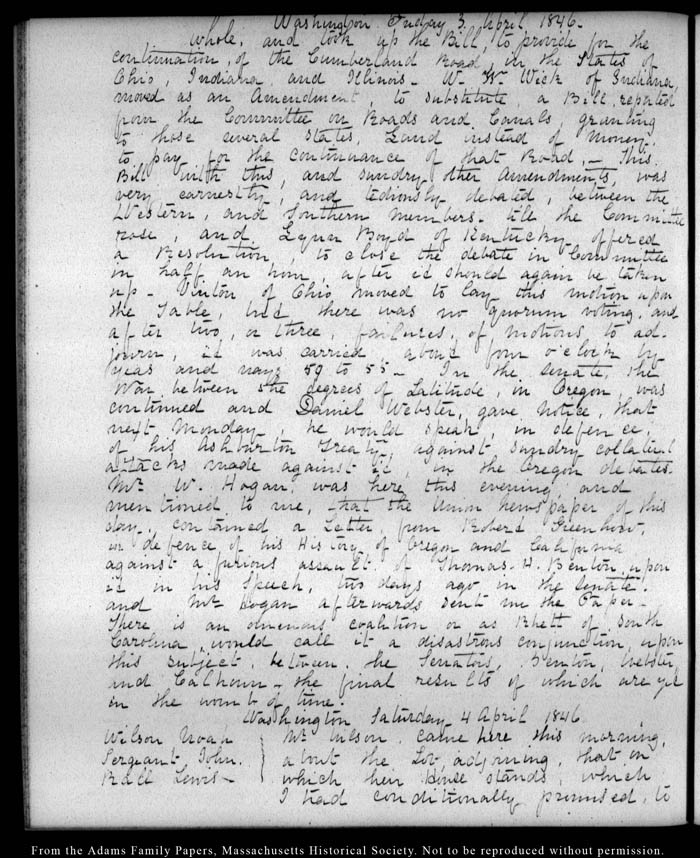 Washington Friday 3. April 1846.
whole, and took up the Bill, to provide for the
continuation, of the Cumberland Road, in the States of
Ohio, Indiana and Illinois - W. W. Wick of Indiana,
moved as an Amendment, to substitute, a Bill, reported
from the Committee on Roads and Canals, granting
to those several States, Land instead of Money,
to pay for the continuance of that Road. - This
Bill with this, and sundry other amendments, was
very earnestly, and tediously debated, between the
Western, and Southern members. till the Committee
rose, and Lynn Boyd of Kentucky offered
a Resolution, to close the debate in Committee
in half an hour, after it should again be taken
up - Vinton of Ohio moved to lay this motion upon
the Table, but there was no quorum voting, and
after two, or three, failures, of motions to ad-
journ, it was carried about four o'clock by
yeas and nays 59 to 55 - In the Senate, the
War between the degrees of Latitude, in Oregon, was
continued and Daniel Webster, gave notice, that
next Monday, he would speak, in defence,
of his Ashburton Treaty, against sundry collateral
attacks made against it, in the Oregon debates.
Mr. W. Hogan, was here this evening and
mentioned to me, that the Union newspaper of this
day, contained a Letter, from Robert Greenhow,
in defence of his History of Oregon and California
against a furious assault of Thomas. H. Benton, upon
it in his Speech, two days ago in the Senate.
and Mr Hogan afterwards sent me the Paper -
There is an obvious coalition or as Rhett of South
Carolina, would call it a disastrous conjunction, upon
this subject, between the Senators, Benton, Webster,
and Calhoun - the final results of which are yet
in the womb of time.
Washington Saturday 4 April 1846.
Wilson Noah Mr Wilson came here this morning,
Sergeant John. about the Lot, adjoining, that on
Ball Lewis - which their House stands, which
I had conditionally promised, to
From the Adams Family Papers, Massachusetts Historical Society. Not to be reproduced without permission.